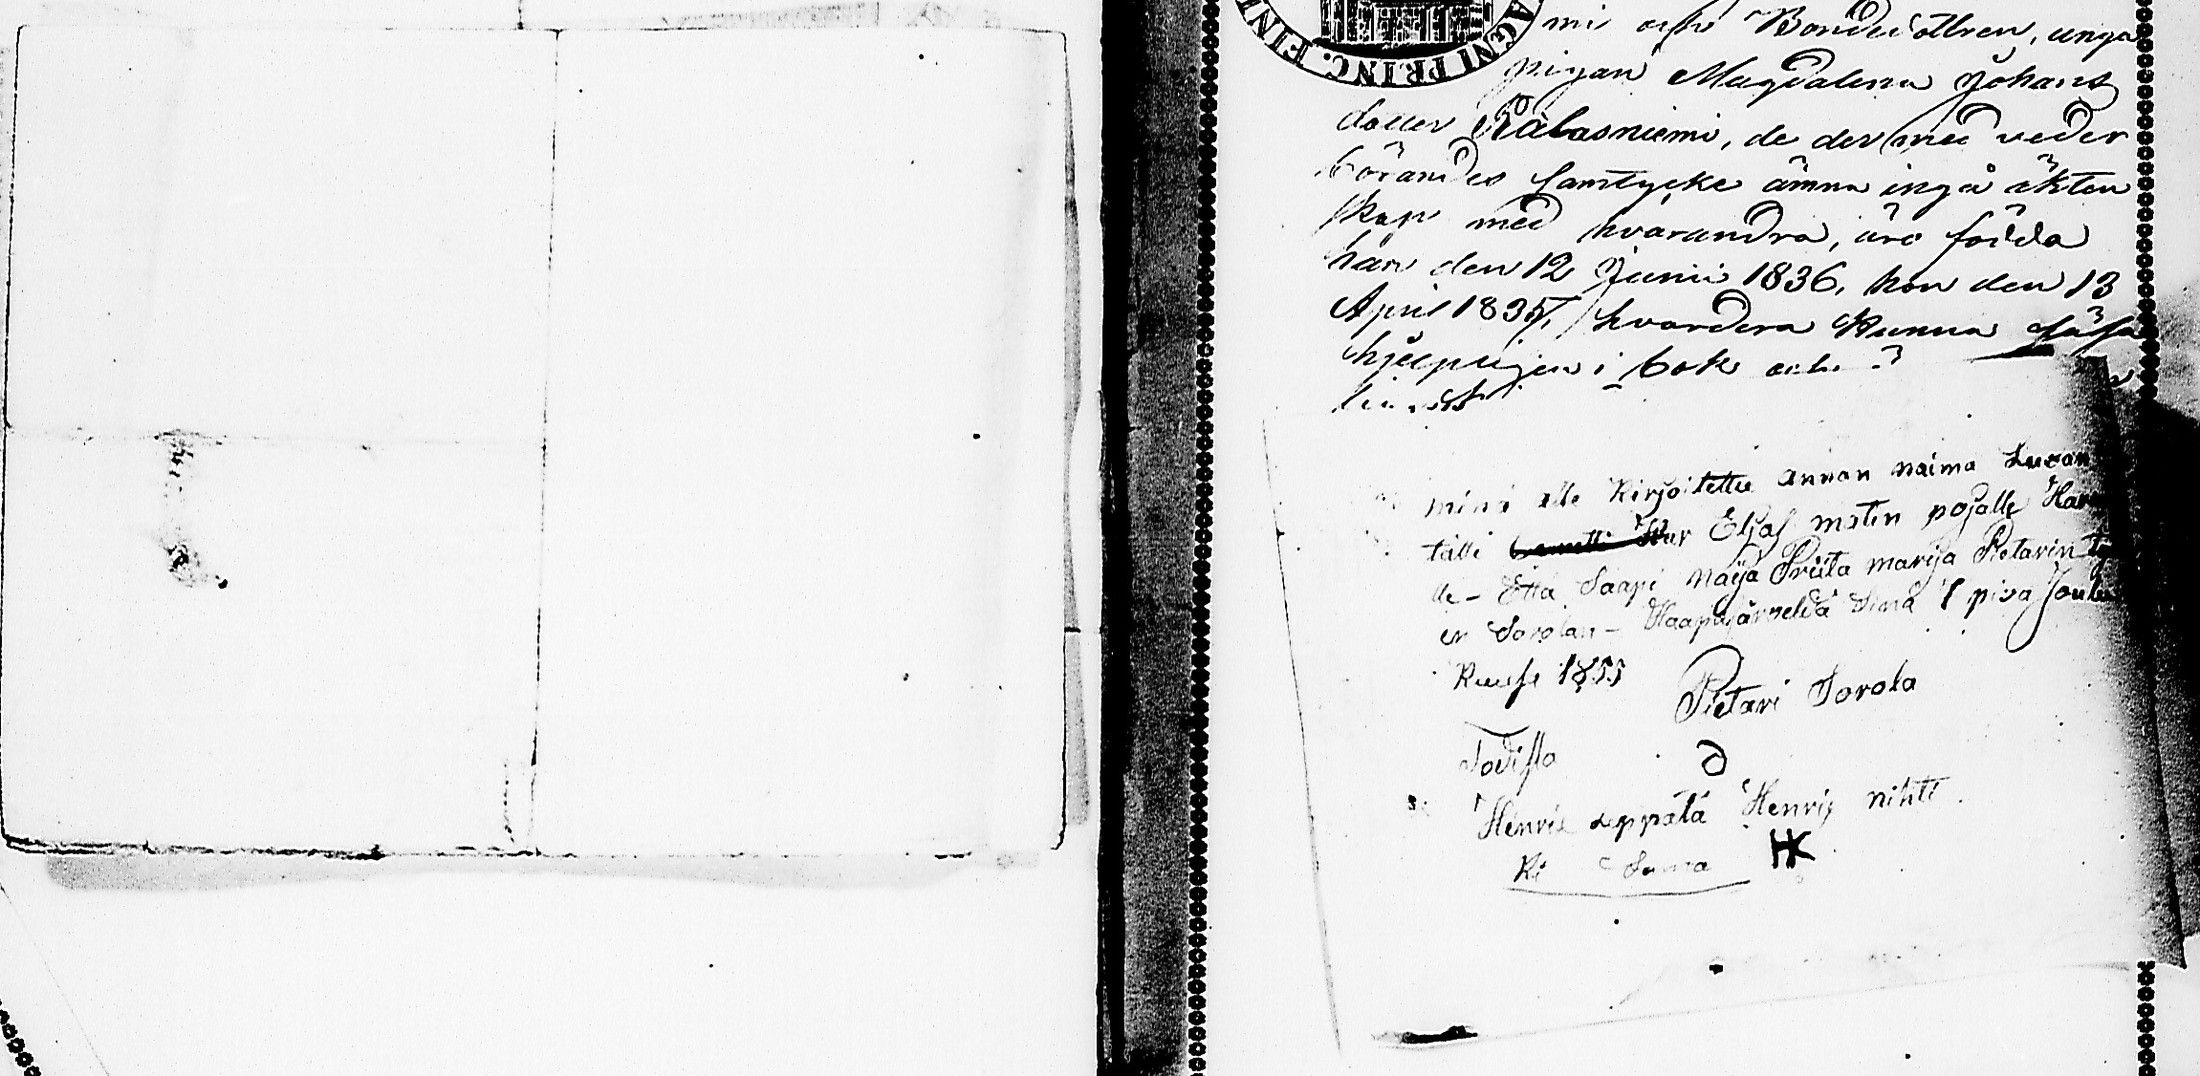 AGNI PRINC. FIN
mi och Bondedottren, unga
pigan Magdalena Johans
dotter Kälasniemi, de der med veder
börandes samtycke ämna ingå äkten
skap med hvarandra, äro födda
han den 12 Junii 1836, hon den 13
April 1835, hvardera kunna läsa
hjelpligen i bok och
minä alle kirjoitettu annan naima Luvan
tälli Eljas matin pojalle
lle - Että Saapi naija Priita marija Pietarin
en Sorolan - Haapajärvellä Sinä 7 pivä Joulu
Kuusa 1855
Pietari Sorola
Todista
Henrik seppälä Henrik nihti
HK